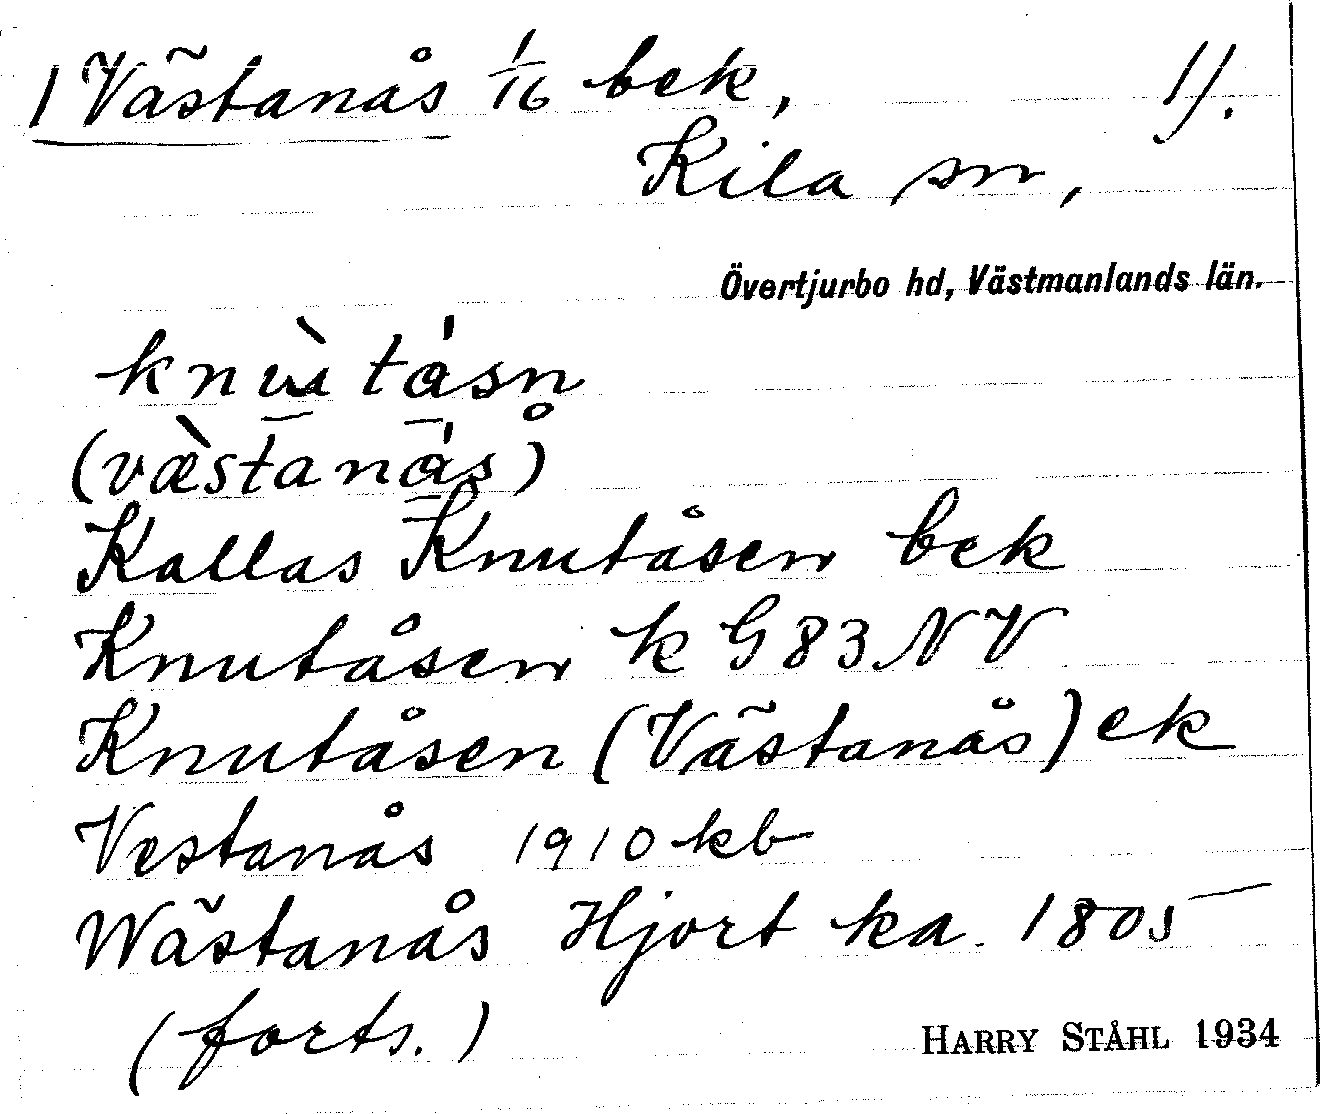 1 Västanås 1/16 bek, 1/.
Kila sn,
Övertjurbo hd, Västmanlands län.
knùtásn
(væ̀stanás)
Kallas Knutåsen bek
Knutåsen k G83NV
Knutåsen (Västanås) ek
Vestanås 1910 kb
Wästanås Hjort ka. 1805
(forts.)
HARRY STÅHL 1934